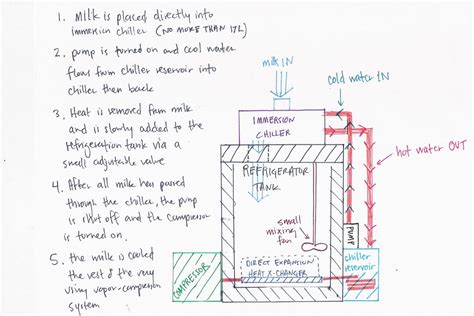 1. MIlk is placed directly into
immersion chiller (NO MORE THAN 17L)
2. pump is turned on and cool water
flows from chiller reservoir into
chiller then back
3. Heat is removed from milk
and is slowly added to the
refrigeration tank via a
small adjustable valve
4. After all milk has passed
through the chiller, the pump
is shut off and the compressor
is turned on.
5. the milk is cooled
the rest of the way
using vapor-compression
system
milk IN
cold water IN
IMMERSION
CHILLER
hot water OUT
REFRIGERATOR
TANK
small
mixing
fan
PUMP
chiller
reservoir
DIRECT EXPANSION
HEAT X-CHANGER
COMPRESSOR